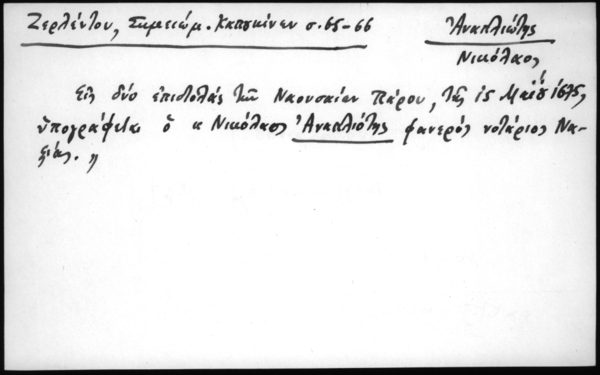 Ζερλέντου, Σημειώμ. Καπουκίνων σ. 65-66
Ἀναπλιώτης
Νικόλαος
Εἰς δύο ἐπιστολάς τῶν Ναουσαίων Πάρου, τῆς 15 Μαΐου 1675,
ὑπογράφεται ὁ κ Νικόλαος Ἀναπλιώτης φανερός νοτάριος Να-
ξίας. 〃